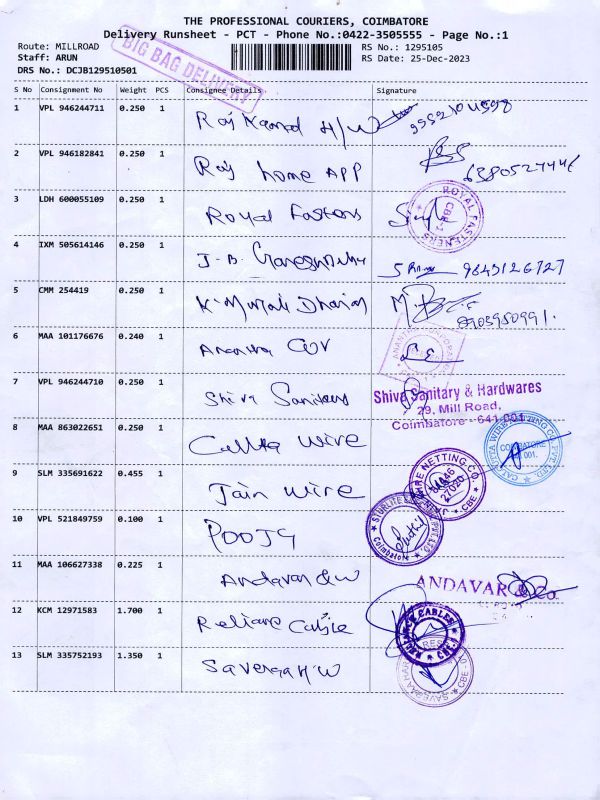 THE PROFESSIONAL COURIERS, COIMBATORE
Delivery Runsheet - PCT - Phone No.:0422-3505555 - Page No.:1
Route: MILLROAD
RS No.: 1295105
Staff: ARUN
RS Date: 25-Dec-2023
DRS No.: DCJB129510501
BIG BAG DELIVERY
S No Consignment No Weight PCS Consignee Details Signature
1 VPL 946244711 0.250 1 Raj H/W
2 VPL 946182841 0.250 1 Raj home APP
3 LDH 600055109 0.250 1 Royal Fastons
ROYAL FASTENERS
CBE-1
4 IXM 505614146 0.250 1 J.B. 9843126727
5 CMM 254419 0.250 1 K. Murali Dharan
8903950991.
6 MAA 101176676 0.240 1 Ananya
7 VPL 946244710 0.250 1 Shiva Sanitary
Shiva Sanitary & Hardwares
29, Mill Road,
Coimbatore - 641 001
8 MAA 863022651 0.250 1 wire
COIMBATORE
9 SLM 335691622 0.455 1 Jain wire
JAIN WIRE NETTING CO. CBE
10 VPL 521849759 0.100 1 POOJA
Coimbatore
11 MAA 106627338 0.225 1 Andavar & W
ANDAVAR & Co.
12 KCM 12971583 1.700 1 Reliance Cable
RELIANCE CABLES
13 SLM 335752193 1.350 1 H/W